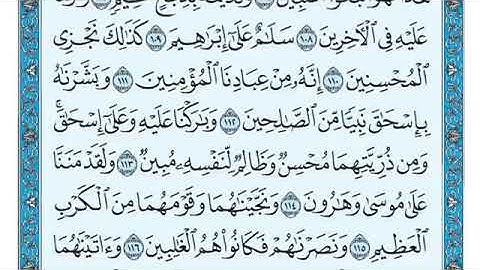 عَلَيْهِ فِي ٱلْأٓخِرِينَ ١٠٨ سَلَٰمٌ عَلَىٰٓ إِبْرَٰهِيمَ ١٠٩ كَذَٰلِكَ نَجْزِي
ٱلْمُحْسِنِينَ ١١٠ إِنَّهُۥ مِنْ عِبَادِنَا ٱلْمُؤْمِنِينَ ١١١ وَبَشَّرْنَٰهُ
بِإِسْحَٰقَ نَبِيًّا مِّنَ ٱلصَّٰلِحِينَ ١١٢ وَبَٰرَكْنَا عَلَيْهِ وَعَلَىٰٓ إِسْحَٰقَۚ
وَمِن ذُرِّيَّتِهِمَا مُحْسِنٌ وَظَالِمٌ لِّنَفْسِهِۦ مُبِينٌ ١١٣ وَلَقَدْ مَنَنَّا
عَلَىٰ مُوسَىٰ وَهَٰرُونَ ١١٤ وَنَجَّيْنَٰهُمَا وَقَوْمَهُمَا مِنَ ٱلْكَرْبِ
ٱلْعَظِيمِ ١١٥ وَنَصَرْنَٰهُمْ فَكَانُوا۟ هُمُ ٱلْغَٰلِبِينَ ١١٦ وَءَاتَيْنَٰهُمَا